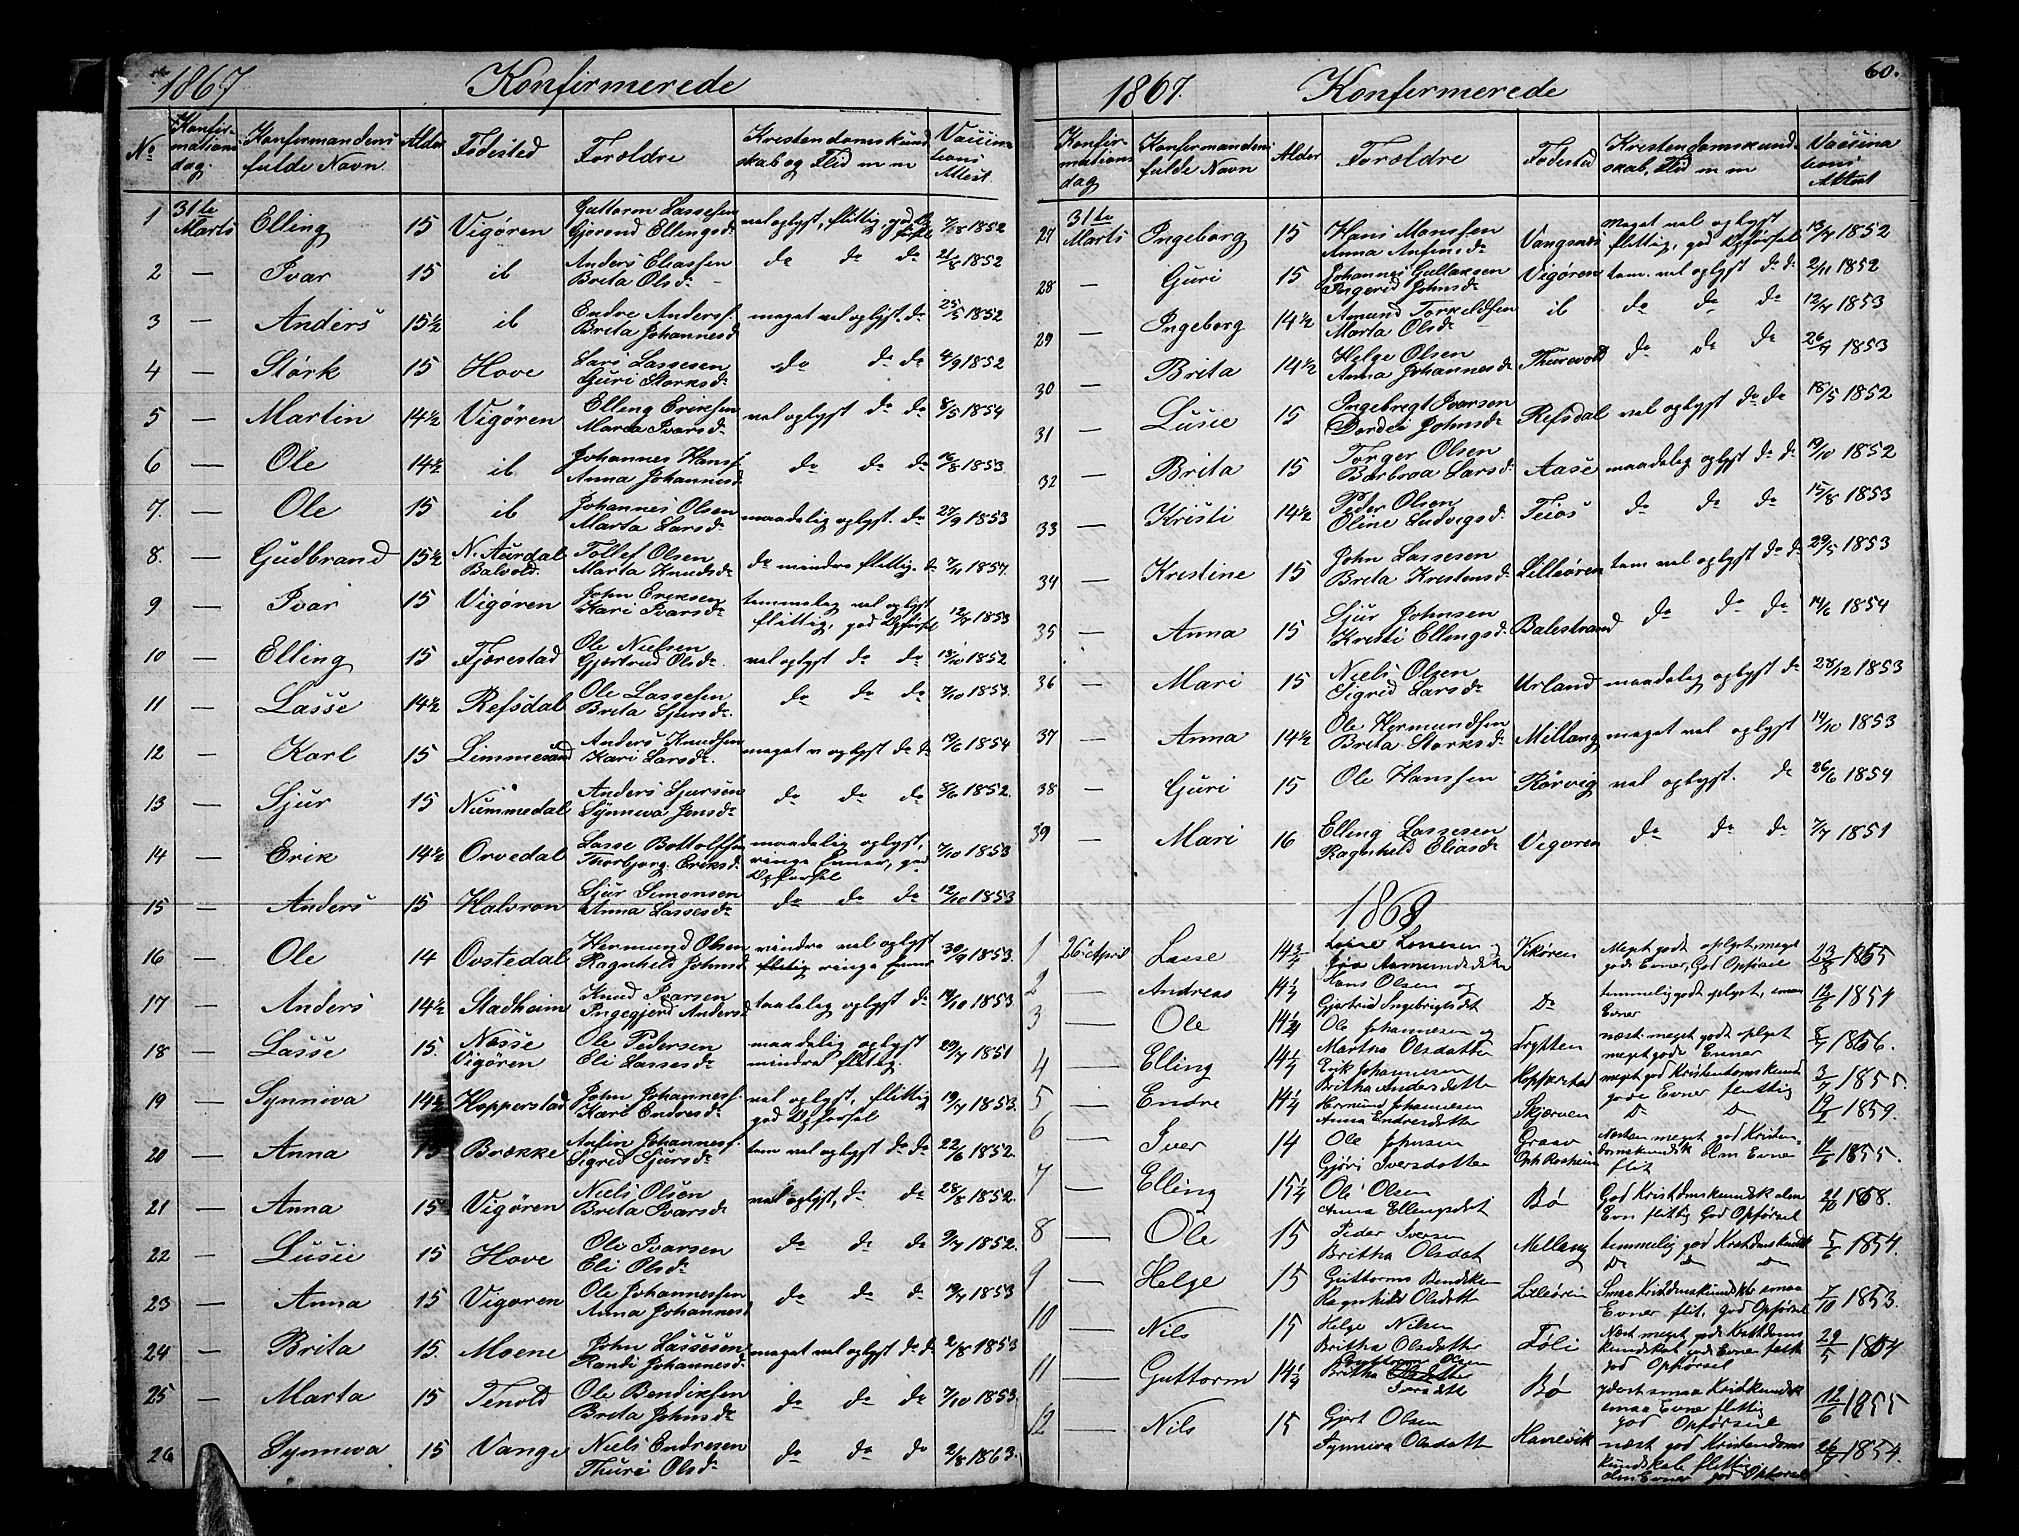 1867 Konfirmerede
No Konfirmations dag. Konfirmandens fulde Navn. Alder Fodested Forældre Kristendomskundskab og Flid m m Vaccinations Attest.
1 31te Marts Elling 15 Vigören Guttorm Lassesen Gjorond Ellingsdr vel oplyst, flittig, god Opførsel 7/8 1852
2 — Ivar 15 ib Anders Eliassen Brita Olsdr do do do 21/8 1852
3 — Anders 15½ ib Endre Anders. Brita Johannesd meget vel oplyst. do 25/5 1852
4 — Störk 15 Hove Lars Lassesen Guri Storksdr do do do 4/9 1852
5 — Martin 14½ Vigören Elling Eriksen Marta Ivarsdr vel oplyst do do 8/5 1854
6 — Ole 14½ ib Johannes Hans. Anna Johannesd do do do 16/8 1853.
7. — Ole 15 ib Johannes Olsen Marta Larsdr maadelig oplyst. do 27/9 1853
8. — Gudbrand 15½ N. Aurdal Balvold. Tollef Olsen Marta Knudsdr do mindre flittig. do 7/11 1854.
9 — Ivar 15 Vigören John Eriksen Kari Ivarsdr temmeleg vel oplyst flittig, god Opførsel 12/7 1853
10 — Elling 15 Fjærestad Ole Nielsen Gjertrud Olsdr vel oplyst do do 18/10 1852
11 — Lasse 14½ Refsdal Ole Lassesen Brita Sjursdr. do do do 7/10 1853.
12 — Karl 15 Limmesand Anders Knudsen Kari Larsdr. meget v oplyst do do 19/6 1854
13 — Sjur 15 Nummedal Anders Sjursen Synneva Jensdr do do do 3/6 1852.
14 — Erik 14½ Orvedal Lasse Bottolfsen Thorbjorg Eriksd maadelig oplyst, ringe Evner, god Opførsel 7/10 1853
15 — Anders 15 Halvron Sjur Simonsen Anna Lassesdr do do do 12/10 1853
16 — Ole 14 Ovstedal Hermund Olsen Ragnhild Johnsd mindre vel oplyst flittig ringe Evner 30/9 1853.
17 — Anders 14½ Stadheim Knud Ivarsen Ingegjerd Andersd taaleleg oplyst do 14/10 1853
18 — Lasse 15. Nesse Vigören Ole Pedersen Eli Lassesdr maadelig oplyst mindre flittig. 29/7 1851
19 — Synniva 14½ Hopperstad John Johannes. Kari Endresdr vel oplyst, flittig god Opførsel 19/7 1853.
20 — Anna 15 Brække Anfin Johannes. Sigrid Sjursdr tem vel oplyst do do 22/6 1852.
21 — Anna 15 Vigören Niels Olsen Brita Ivarsdr vel oplyst, do do 28/8 1852.
22 — Lusie 15 Hove Ole Ivarsen Eli Olsdr do do do 9/7 1852.
23 — Anna 15 Vigoren Ole Johannessen Anna Johannesd do do do 19/7 1853
24 — Brita 15. Moene John Lassesen Randi Johannesd meget vel oplyst do do 2/8 1853
25 — Marta 15 Tenold Ole Bendiksen Brita Johnsdr do do do 7/10 1853.
26 — Synneva 15 Vange Niels Endresen Thuri Olsdr do do do 2/8 1863.
1867. Konfirmerede 60.
Konfirmations dag Konfirmandens fulde Navn Alder Forældre Fodestad Kristendomskundskab, Flid m m Vaccinations Attest
27 31te Marts Ingeborg 15 Hans Monssen Anna Anfinsdr Vangsnæs meget vel oplyst flittig, god Opførsel 13/7 1852
28 — Guri 15 Johannes Gullaksen Ingerid Johnsdr Vigøren tem. vel oplyst do do 2/11 1852
29 — Ingeborg 14½ Amund Torkeldsen Marta Olsdr ib do do do 12/7 1853
30 — Brita 14½ Helge Olsen Anna Johannesdr Thurevold do do do 26/7 1853
31 — Lusie 15 Ingebregt Ivarson Dordei Johnsdr Refsdal vel oplyst do do 18/5 1852
32 — Brita 15 Torger Olsen Barbroa Larsdr Aase maadeleg oplyst do do 19/10 1852
33 — Kristi 14½ Peder Olsen Oline Ludvigsdr Feios do do do 15/8 1853
34 — Kristine 15 John Lassesen Brita Kristensdr Lilleören tem vel oplyst do do 29/5 1853
35 — Anna 15 Sjur Johnsen Kristi Ellingsdr Balestrand do do do 14/6 1854
36 — Mari 15 Niels Olsen Sigrid Larsdr Urland maadeleg oplyst do 28/12 1853
37 — Anna 14½ Ole Hermundsen Brita Storksdr Millang meget vel oplyst 14/10 1853
38 — Guri 15 Ole Hanssen Rörvig vel oplyst. do 26/6 1854
39 — Mari 16 Elling Lassesen Ragnhild Eliasdr Vigoren do do do 7/7 1851
1868
1 26 April Lasse 14¾ Lasse Lassesen og Amundsdatter Vikören Meget godt oplyst, meget gode Evner, God Opførsel 23/8 1855
2 — Andreas 14¼ Hans Olsen og Gjertrud Ingebrigtsdt Do temmelig godt oplyst, smaa Evner 12/6 1854
3 — Ole 14¼ Ole Johannesen og Martha Olsdatter Trytten næst meget godt oplyst meget gode Evner 8/7 1856.
4 — Elling 14¼ Erik Johannesen Britha Andersdatter Hopperstad meget god Kristendomskund gode Evner flittig 3/7 1855
5 — Endre 14¼ Hermund Johannesen Anna Endresdatter Skjærven D D 19/2 1859.
6 — Iver 14 Ole Johnsen Gjöri Iversdatter Næsten meget god Kristendomskundsk Alm Evner flit 12/6 1855.
7 — Elling 15¼ Ole Olsen Anna Ellingsdat Bø God Kristdmskundsk alm Evn flittig God Opførsel 21/10 1858.
8 — Ole 15 Peder Iversen Britha Olsdat Mellang temmelig god Kristdmskundsk D D D 5/6 1854.
9 — Helge 15 Guttorm Bendiksen Ragnhild Olsdatter Lilleören Smaa Kristdmskundsk smaa Evner flit. god Opførsel 7/10 1853.
10 — Nils 15 Helge Nilsen Britha Olsdatter Föli Næst meget gode Kristdoms kundskab gode Evner god Opførsel 29/5 1854
11 — Guttorm 14¼ Guttorm Olsen Britha Olsdatter Iversdtr Bø smaa Kristkundsk smaa Evner flittig god Opførsel 12/6 1855
12 — Nils 15 Gjert Olsen Synniva Olsdatt Hanevik næst god Kristendoms kundskab flittig alm Evner god Opførsel 26/9 1854.